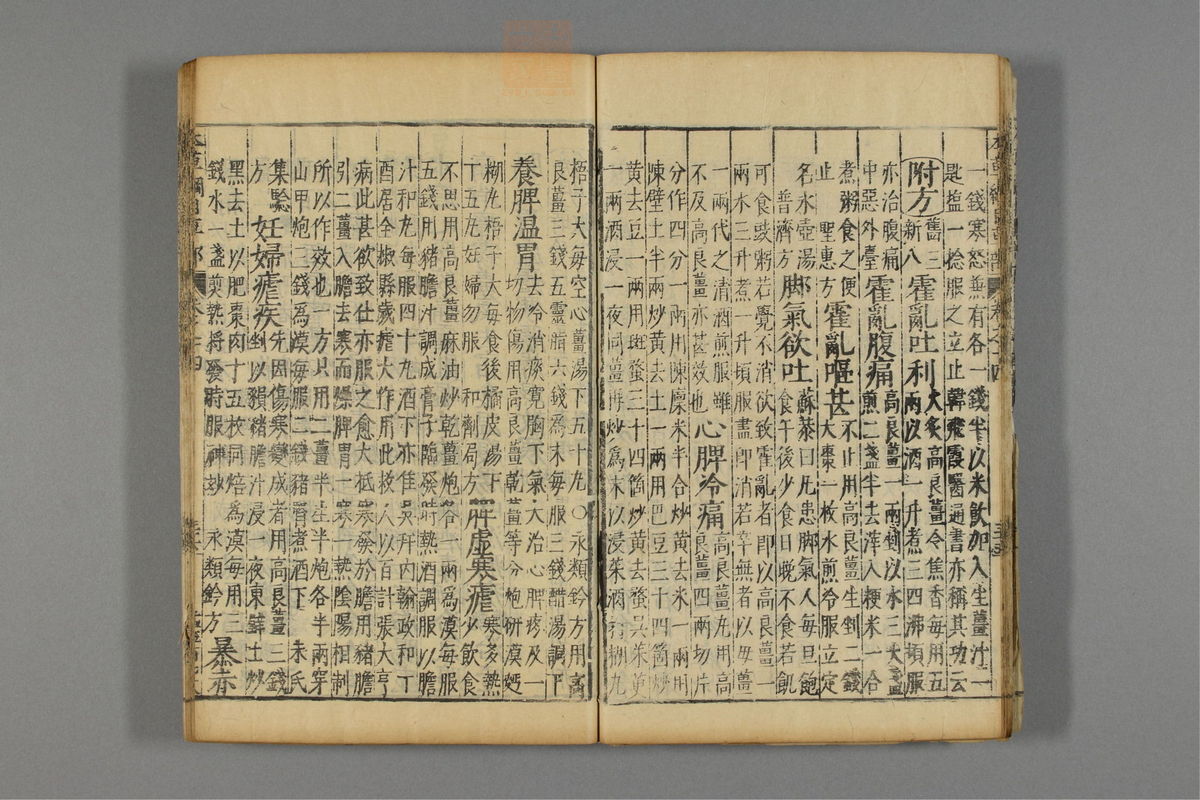 一錢寒怒兼有各一錢半以米飲加入生薑汁一
匙塩一捻服之立止韓飛霞醫通書亦稱其功云
附方
舊三
新八
霍亂吐利
火炙高良薑令焦香每用五
兩以酒一升煮三四沸頓服
亦治腹痛
中惡外臺
霍亂腹痛
高良薑一兩剉以水三大盞
煎二盞半去滓入粳米一合
煮粥食之便
止 聖惠方
霍亂嘔甚
不止用高良薑生剉二錢
大棗一枚水煎冷服立定
名水壺湯
普濟方
脚氣欲吐
蘇恭曰凡患脚氣人每旦飽
食午後少食日晚不食若飢
可食豉粥若覺不消欲致霍亂者即以高良薑一
兩水三升煮一升頓服盡即消若卒無者以母薑
一兩代之清酒煎服雖
不及高良薑亦甚效也
心脾冷痛
高良薑丸用
良薑四兩切片
分作四分一兩用陳廩米半合炒黃去米一兩用
陳壁土半兩炒黃去土一兩用巴豆三十四箇炒
黃去豆一兩用斑蝥三十四箇炒黃去蝥吳茱萸
一兩酒浸一夜同薑再炒爲末以浸茱酒打糊丸
梧子大每空心薑湯下五十丸〇永類鈐方用高
良薑三錢五靈脂六錢爲末每服三錢醋湯調下
養脾溫胃
去冷消痰寬胸下氣大治心脾疼及一
切冷物傷用高良薑乾薑等分炮研漠麪
糊丸梧子大每食後橘皮湯下
十五丸妊婦勿服 和劑局方
脾虛寒瘧
寒多熱
少飲食
不思用高良薑麻油炒乾薑炮各一兩爲漠每服
五錢用猪膽汁調成膏子臨發時熱酒調服以膽
汁和丸每服四十丸酒下亦佳吳幵內翰政和丁
酉居全椒縣歲瘧大作用此救人以百計張大亨
病此甚欲致仕亦服之愈大抵寒發於膽用猪膽
引二薑入膽去寒而燥脾胃一寒一熱陰陽相制
所以作效也一方只用二薑半生半炮各半兩穿
山甲炮三錢爲漠每服二錢豬腎煮酒下 朱氏
集驗
方
妊婦瘧疾
先因傷寒變成者用高良薑三錢
剉以豶猪膽汁浸一夜東壁土炒
黑去土以肥棗肉十五枚同焙爲漠每用三
錢水一盞煎熱將發時服神妙 永類鈐方
暴赤